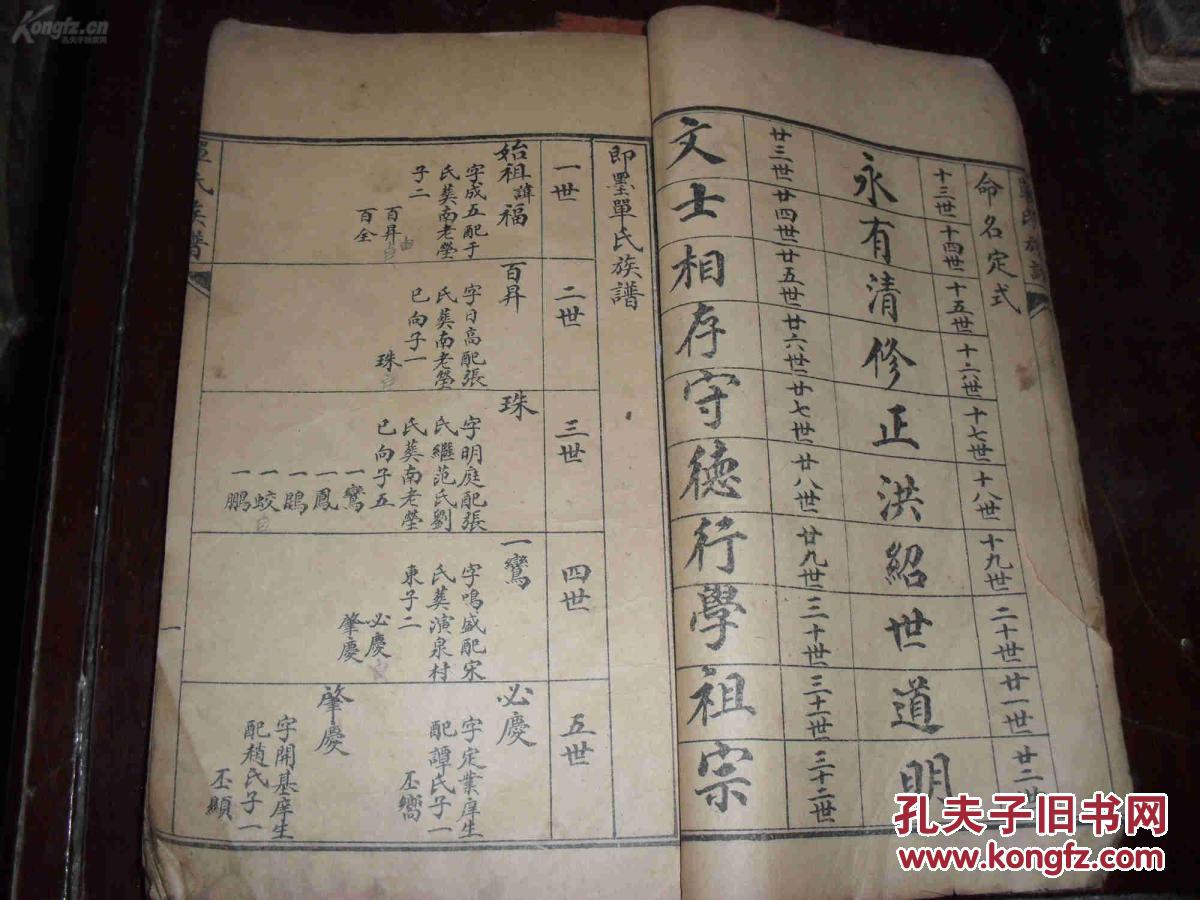 命名定式
十三世 十四世 十五世 十六世 十七世 十八世 十九世 二十世 廿一世 廿二世
永有清修正洪紹世道明
廿三世 廿四世 廿五世 廿六世 廿七世 廿八世 廿九世 三十世 三十一世 三十二世
文士相存守德行學祖宗
即墨單氏族譜
一世
始祖諱福
字成五配于
氏葬南老塋
子二
百昇
百全
二世
百昇
字日高配張
氏葬南老塋
巳向子一
珠
三世
珠
字明庭配張
氏繼范氏劉
氏葬南老塋
巳向子五
一鸞
一鳳
一鵾
一蛟
一鵬
四世
一鸞
字鳴盛配宋
氏葬演泉村
東子二
必慶
肇慶
五世
必慶
字定業庠生
配譚氏子一
丕嚮
肇慶
字開基庠生
配趙氏子一
丕顯
單氏族譜
一
Kongfz.cn
孔夫子旧书网
孔夫子旧书网
www.kongfz.com